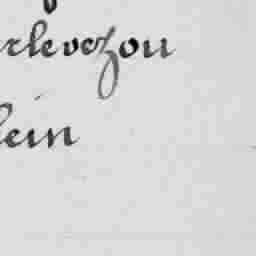 rlevezou
lein